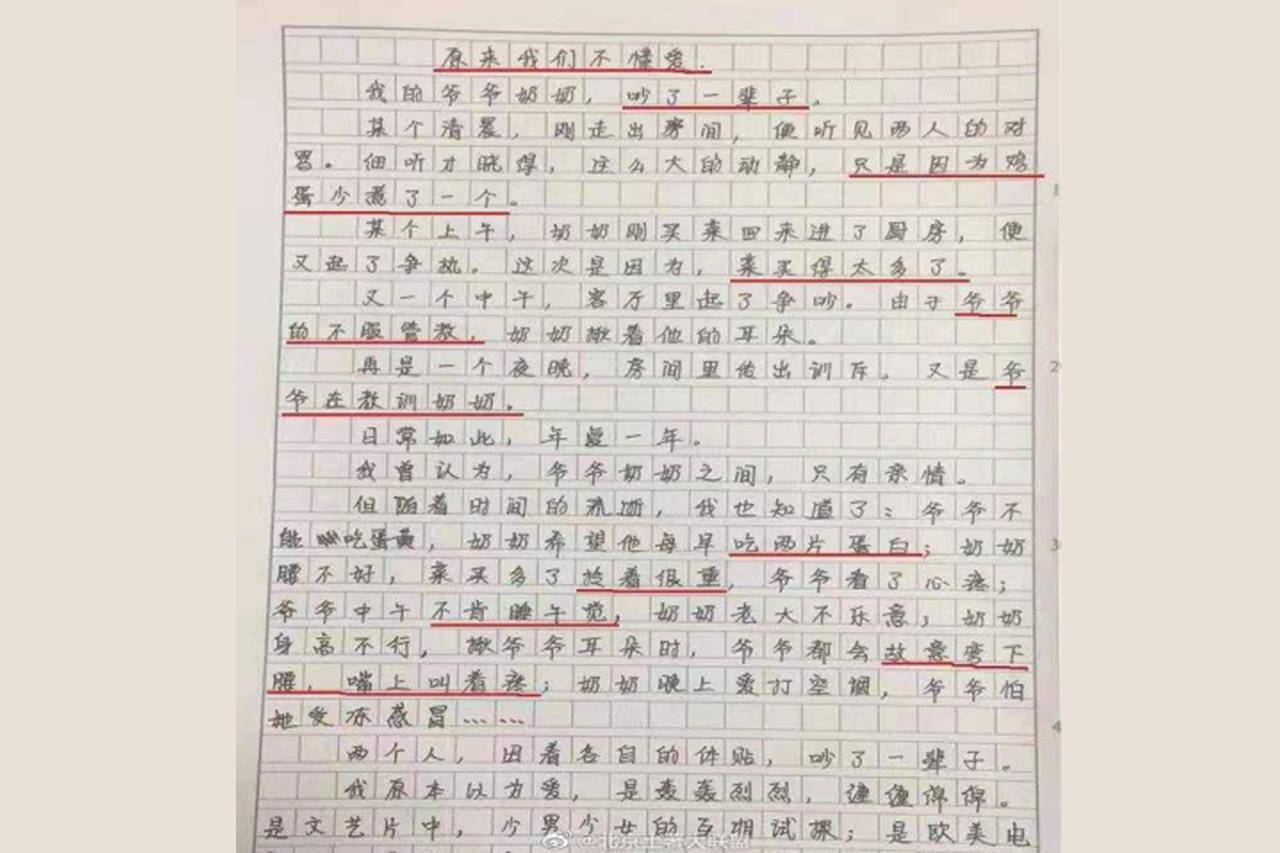 原来我们不懂爱.
我的爷爷奶奶，吵了一辈子。
某个清晨，刚走出房间，便听见两人的对
骂。细听才晓得，这么大的动静，只是因为鸡
蛋少煮了一个。
某个上午，奶奶刚买菜回来进了厨房，便
又起了争执。这次是因为，菜买得太多了。
又一个中午，客厅里起了争吵。由于爷爷
的不服管教，奶奶揪着他的耳朵。
再是一个夜晚，房间里传出训斥。又是爷
爷在教训奶奶。
日常如此，年复一年。
我曾认为，爷爷奶奶之间，只有亲情。
但随着时间的流逝，我也知道了：爷爷不
能吃蛋黄，奶奶希望他每早吃两片蛋白；奶奶
腰不好，菜买多了拎着很重，爷爷看了心疼；
爷爷中午不肯睡午觉，奶奶老大不乐意；奶奶
身高不行，揪爷爷耳朵时，爷爷都会故意弯下
腰，嘴上叫着疼；奶奶晚上爱打空调，爷爷怕
她受冻感冒……
两个人，因着各自的体贴，吵了一辈子。
我原本以为爱，是轰轰烈烈，缠缠绵绵。
是文艺片中，少男少女的互相试探；是欧美电
@北京工者大联盟
1
2
3
4